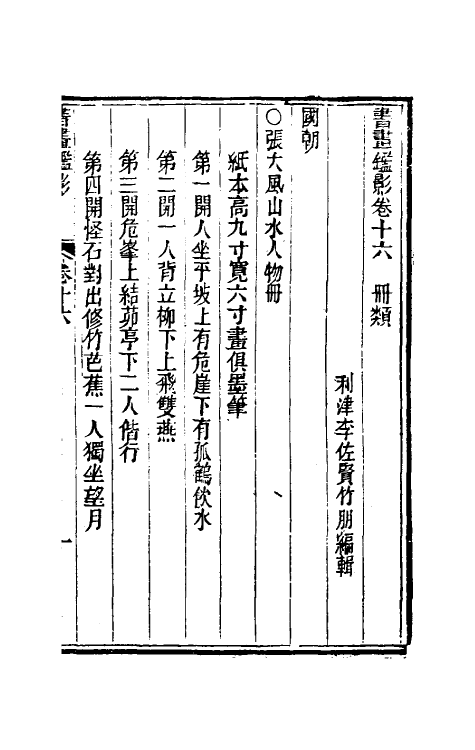 書畫鑑影卷十六　冊類
利津李佐賢竹朋編輯
國朝
○張大風山水人物冊
紙本高九寸寬六寸畫俱墨筆
第一開人坐平坡上有危崖下有孤鶴飲水
第二開一人背立柳下上飛雙燕
第三開危峯上結茆亭下二人偕行
第四開怪石對出修竹芭蕉一人獨坐望月
書畫鑑影　卷十六　一